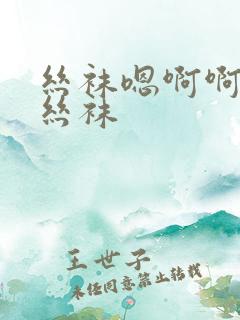 絲袜嗯啊啊
絲袜
王世子
未经同意禁止转载